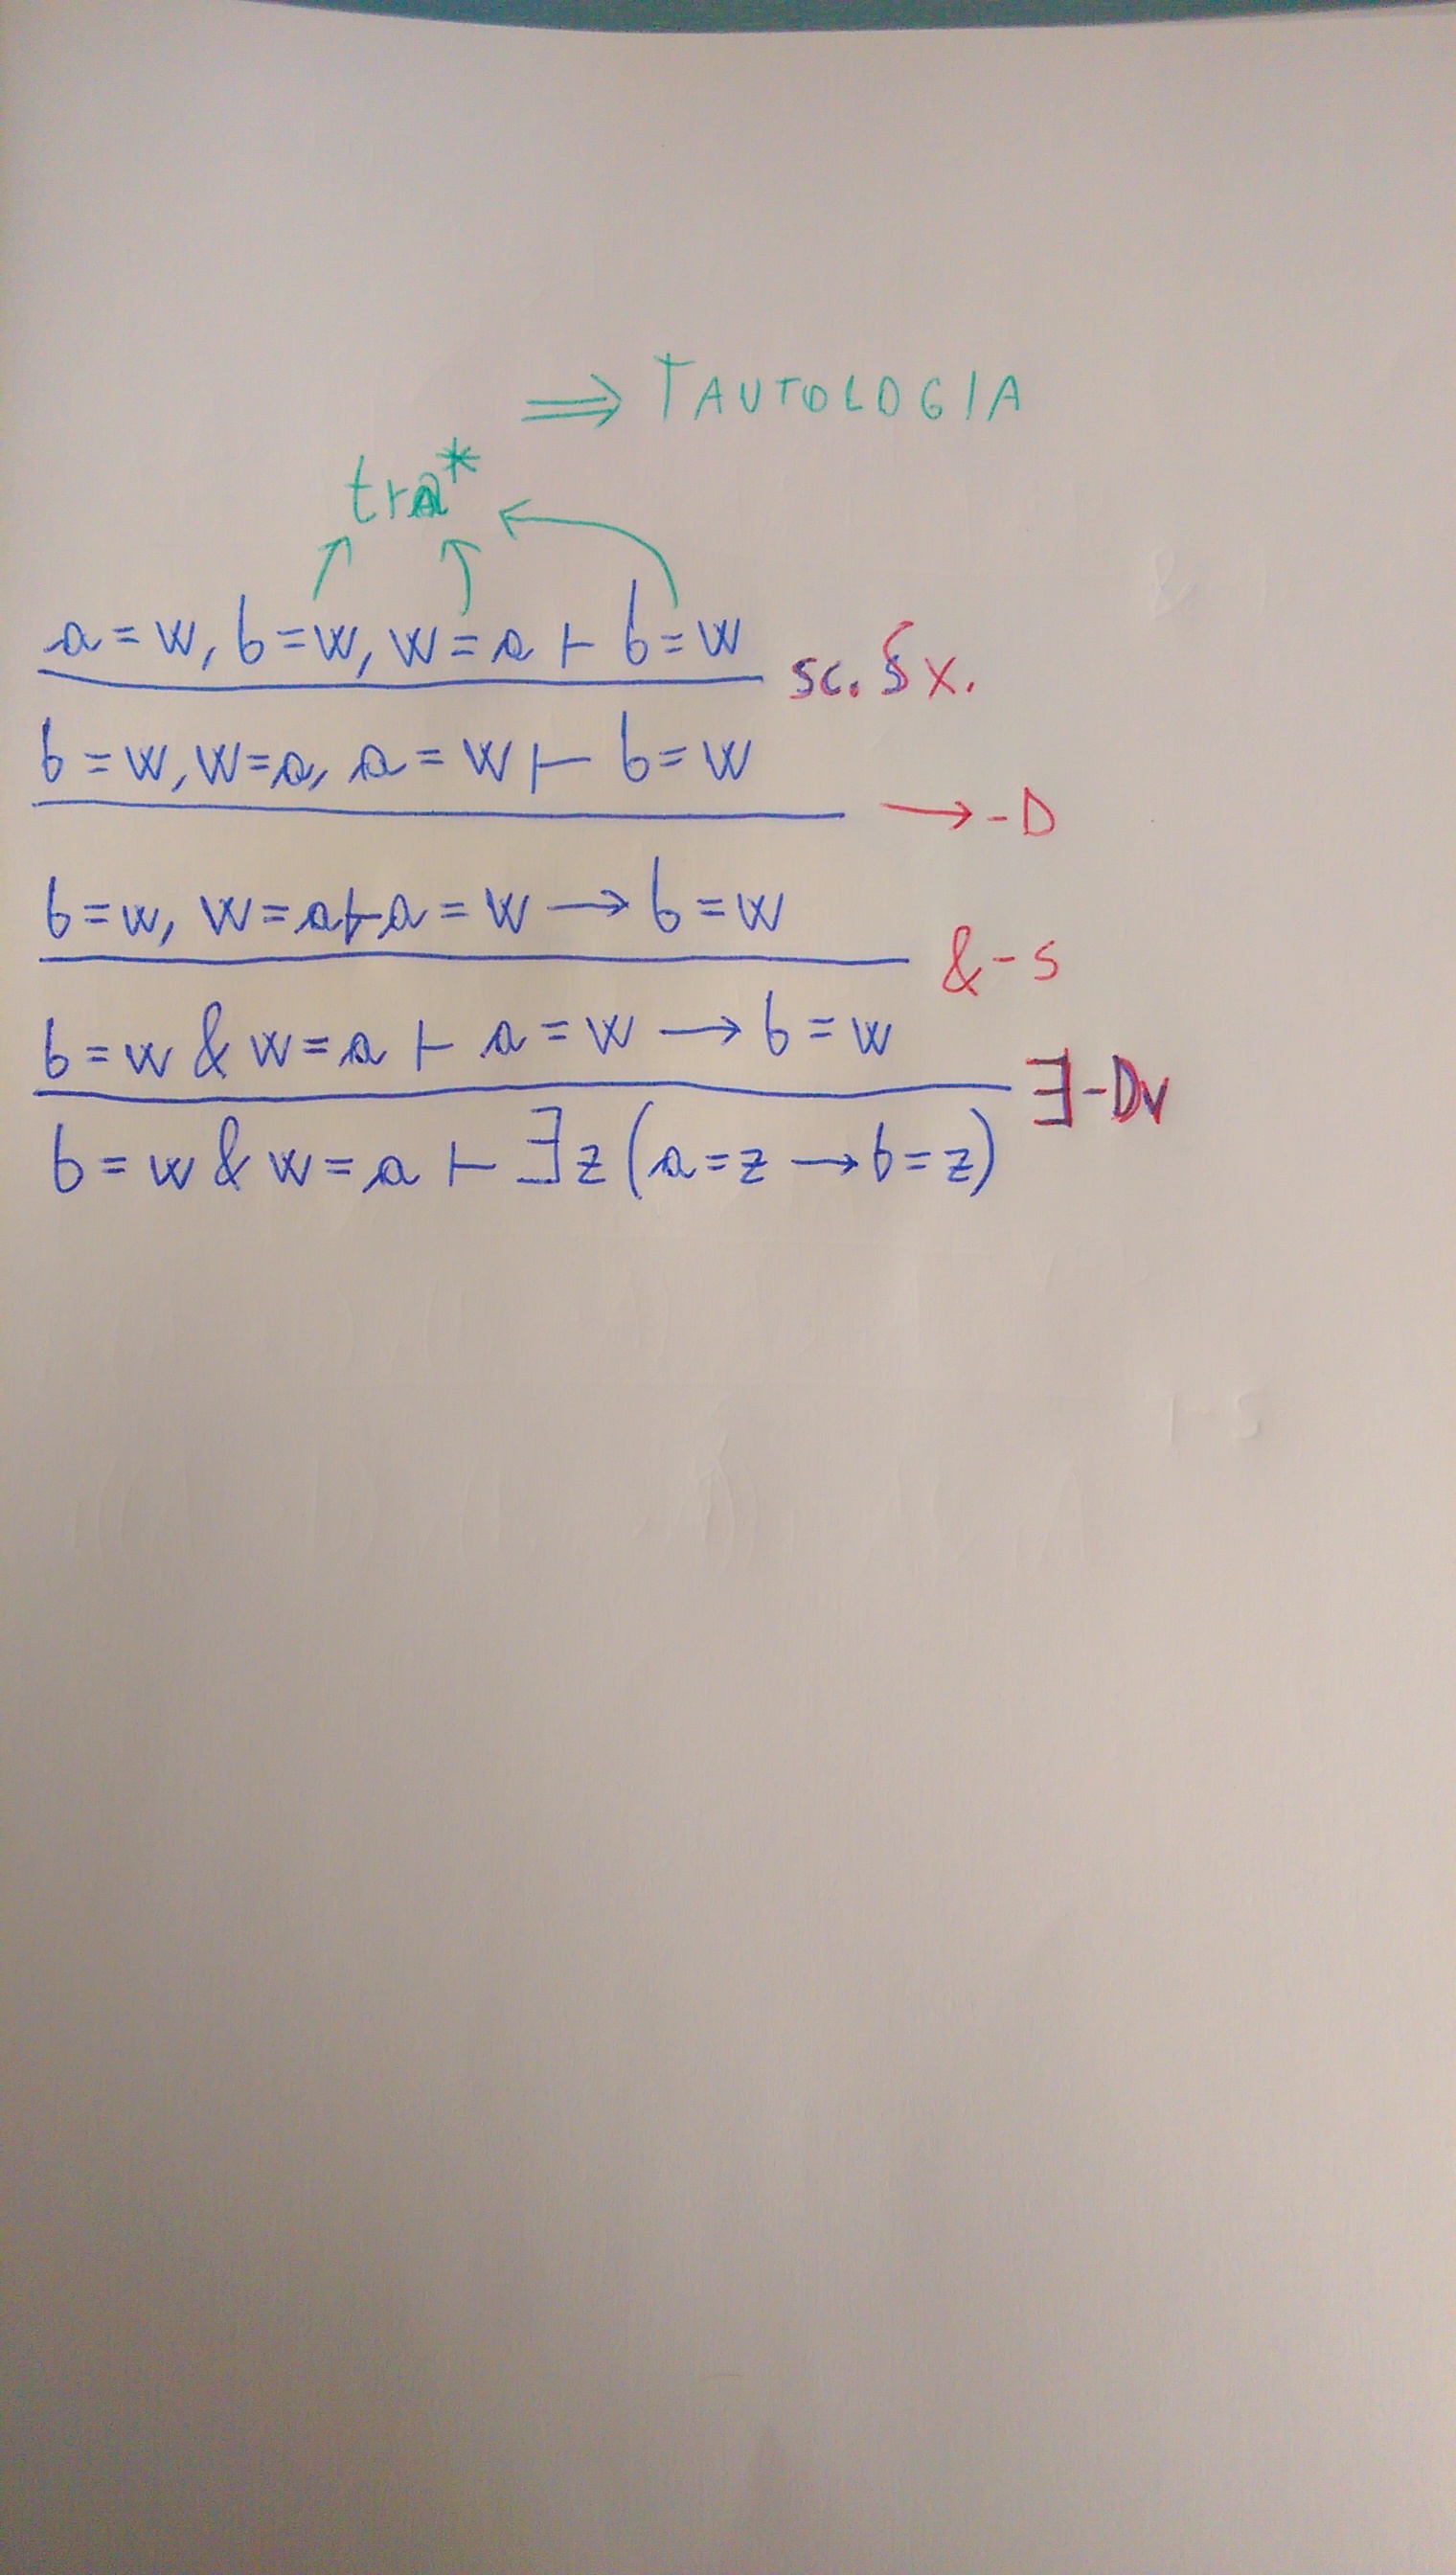 ⟹ TAUTOLOGIA
tra*
a = w, b = w, w = a ⊢ b = w sc. sx.
b = w, w = a, a = w ⊢ b = w
→-D
b = w, w = a ⊢ a = w → b = w
&-S
b = w & w = a ⊢ a = w → b = w
∃-Dv
b = w & w = a ⊢ ∃z (a = z → b = z)